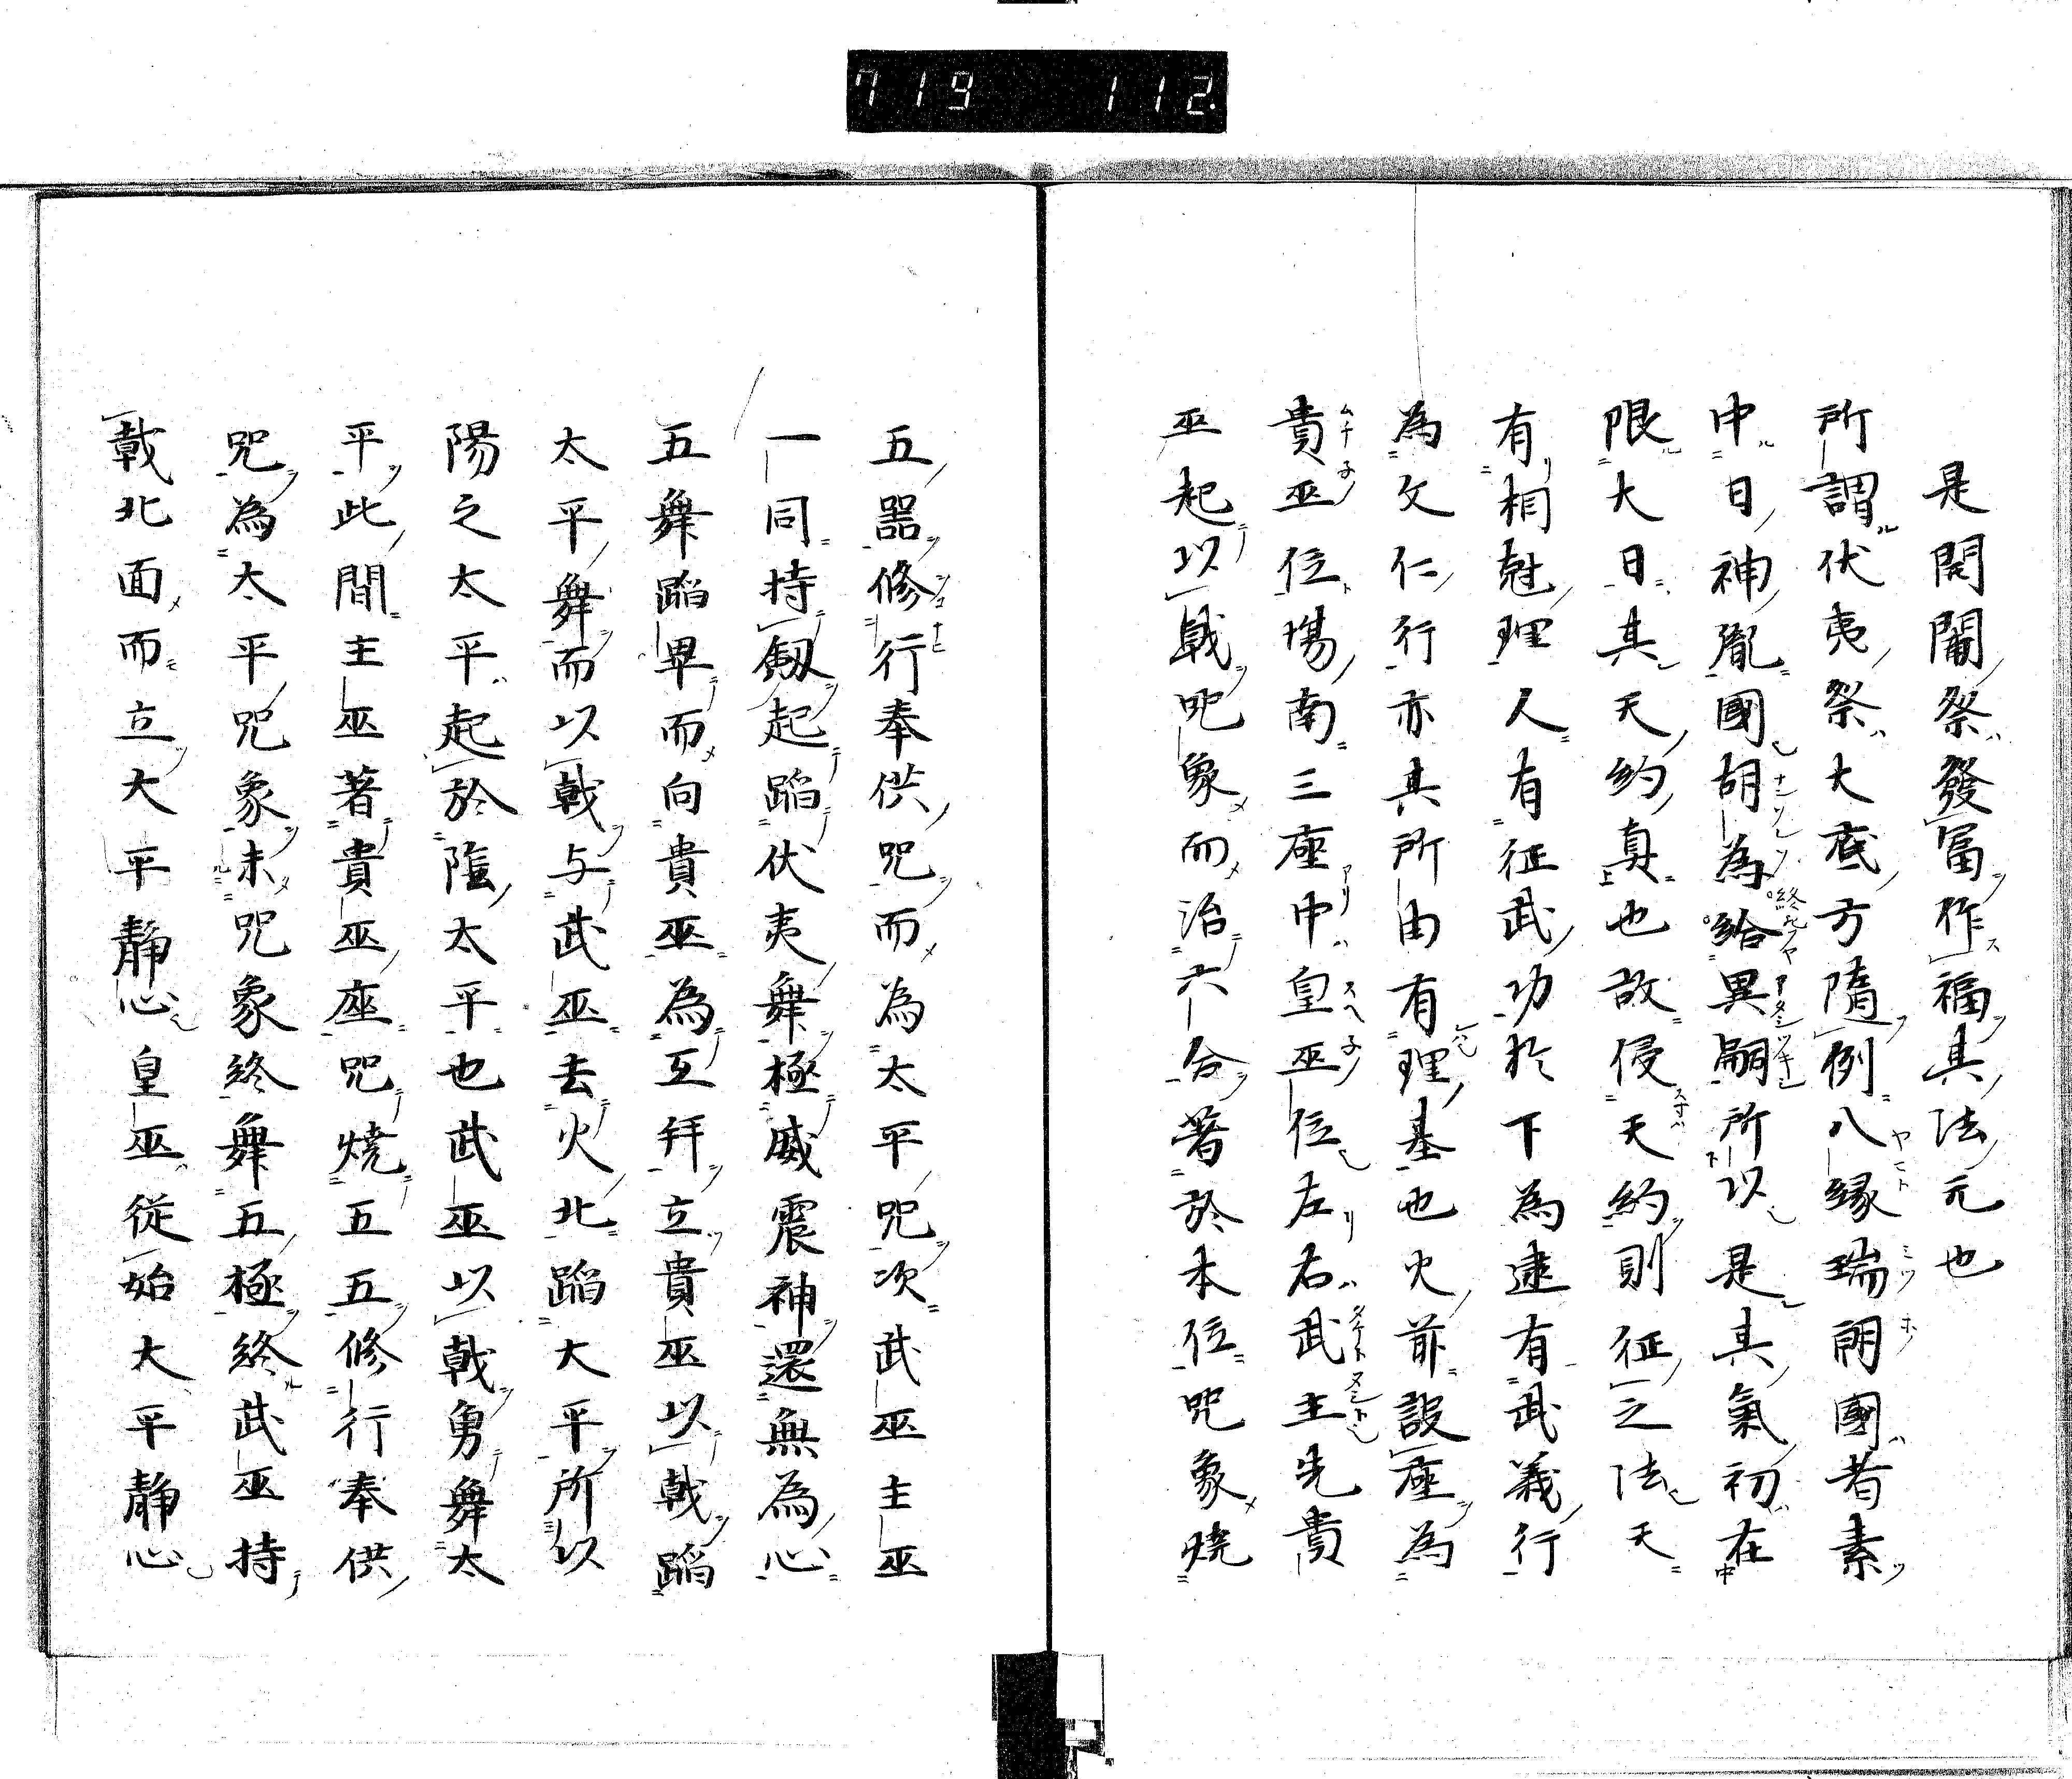 719 112
是開闢祭發畐作福其法元也
所謂伏夷祭大底方隨例八縁瑞朗國者素
中日神胤國胡為給異嗣所以是其氣初在
限大日其天約真也故侵天約則征之法天
有相尅理人有征武功於下為逮有武義行
為文仁行亦其所由有理基也火前設座為
貴巫位場南三座中皇巫位左右武主先貴
巫起以戟呪象而治六合著於本位呪象燒
五器修行奉供呪而為太平呪次武巫主巫
一同持劔起蹈伏夷舞極威震神還無為心
五舞蹈畢而向貴巫為互拜立貴巫以戟蹈
太平舞而以戟与武巫去火北蹈大平所以
陽之太平起於陰太平也武巫以戟勇舞太
平此間主巫著貴巫座呪燒五五修行奉供
呪為太平呪象未呪象終舞五極終武巫持
戟北面而立大平靜心皇巫從始大平靜心